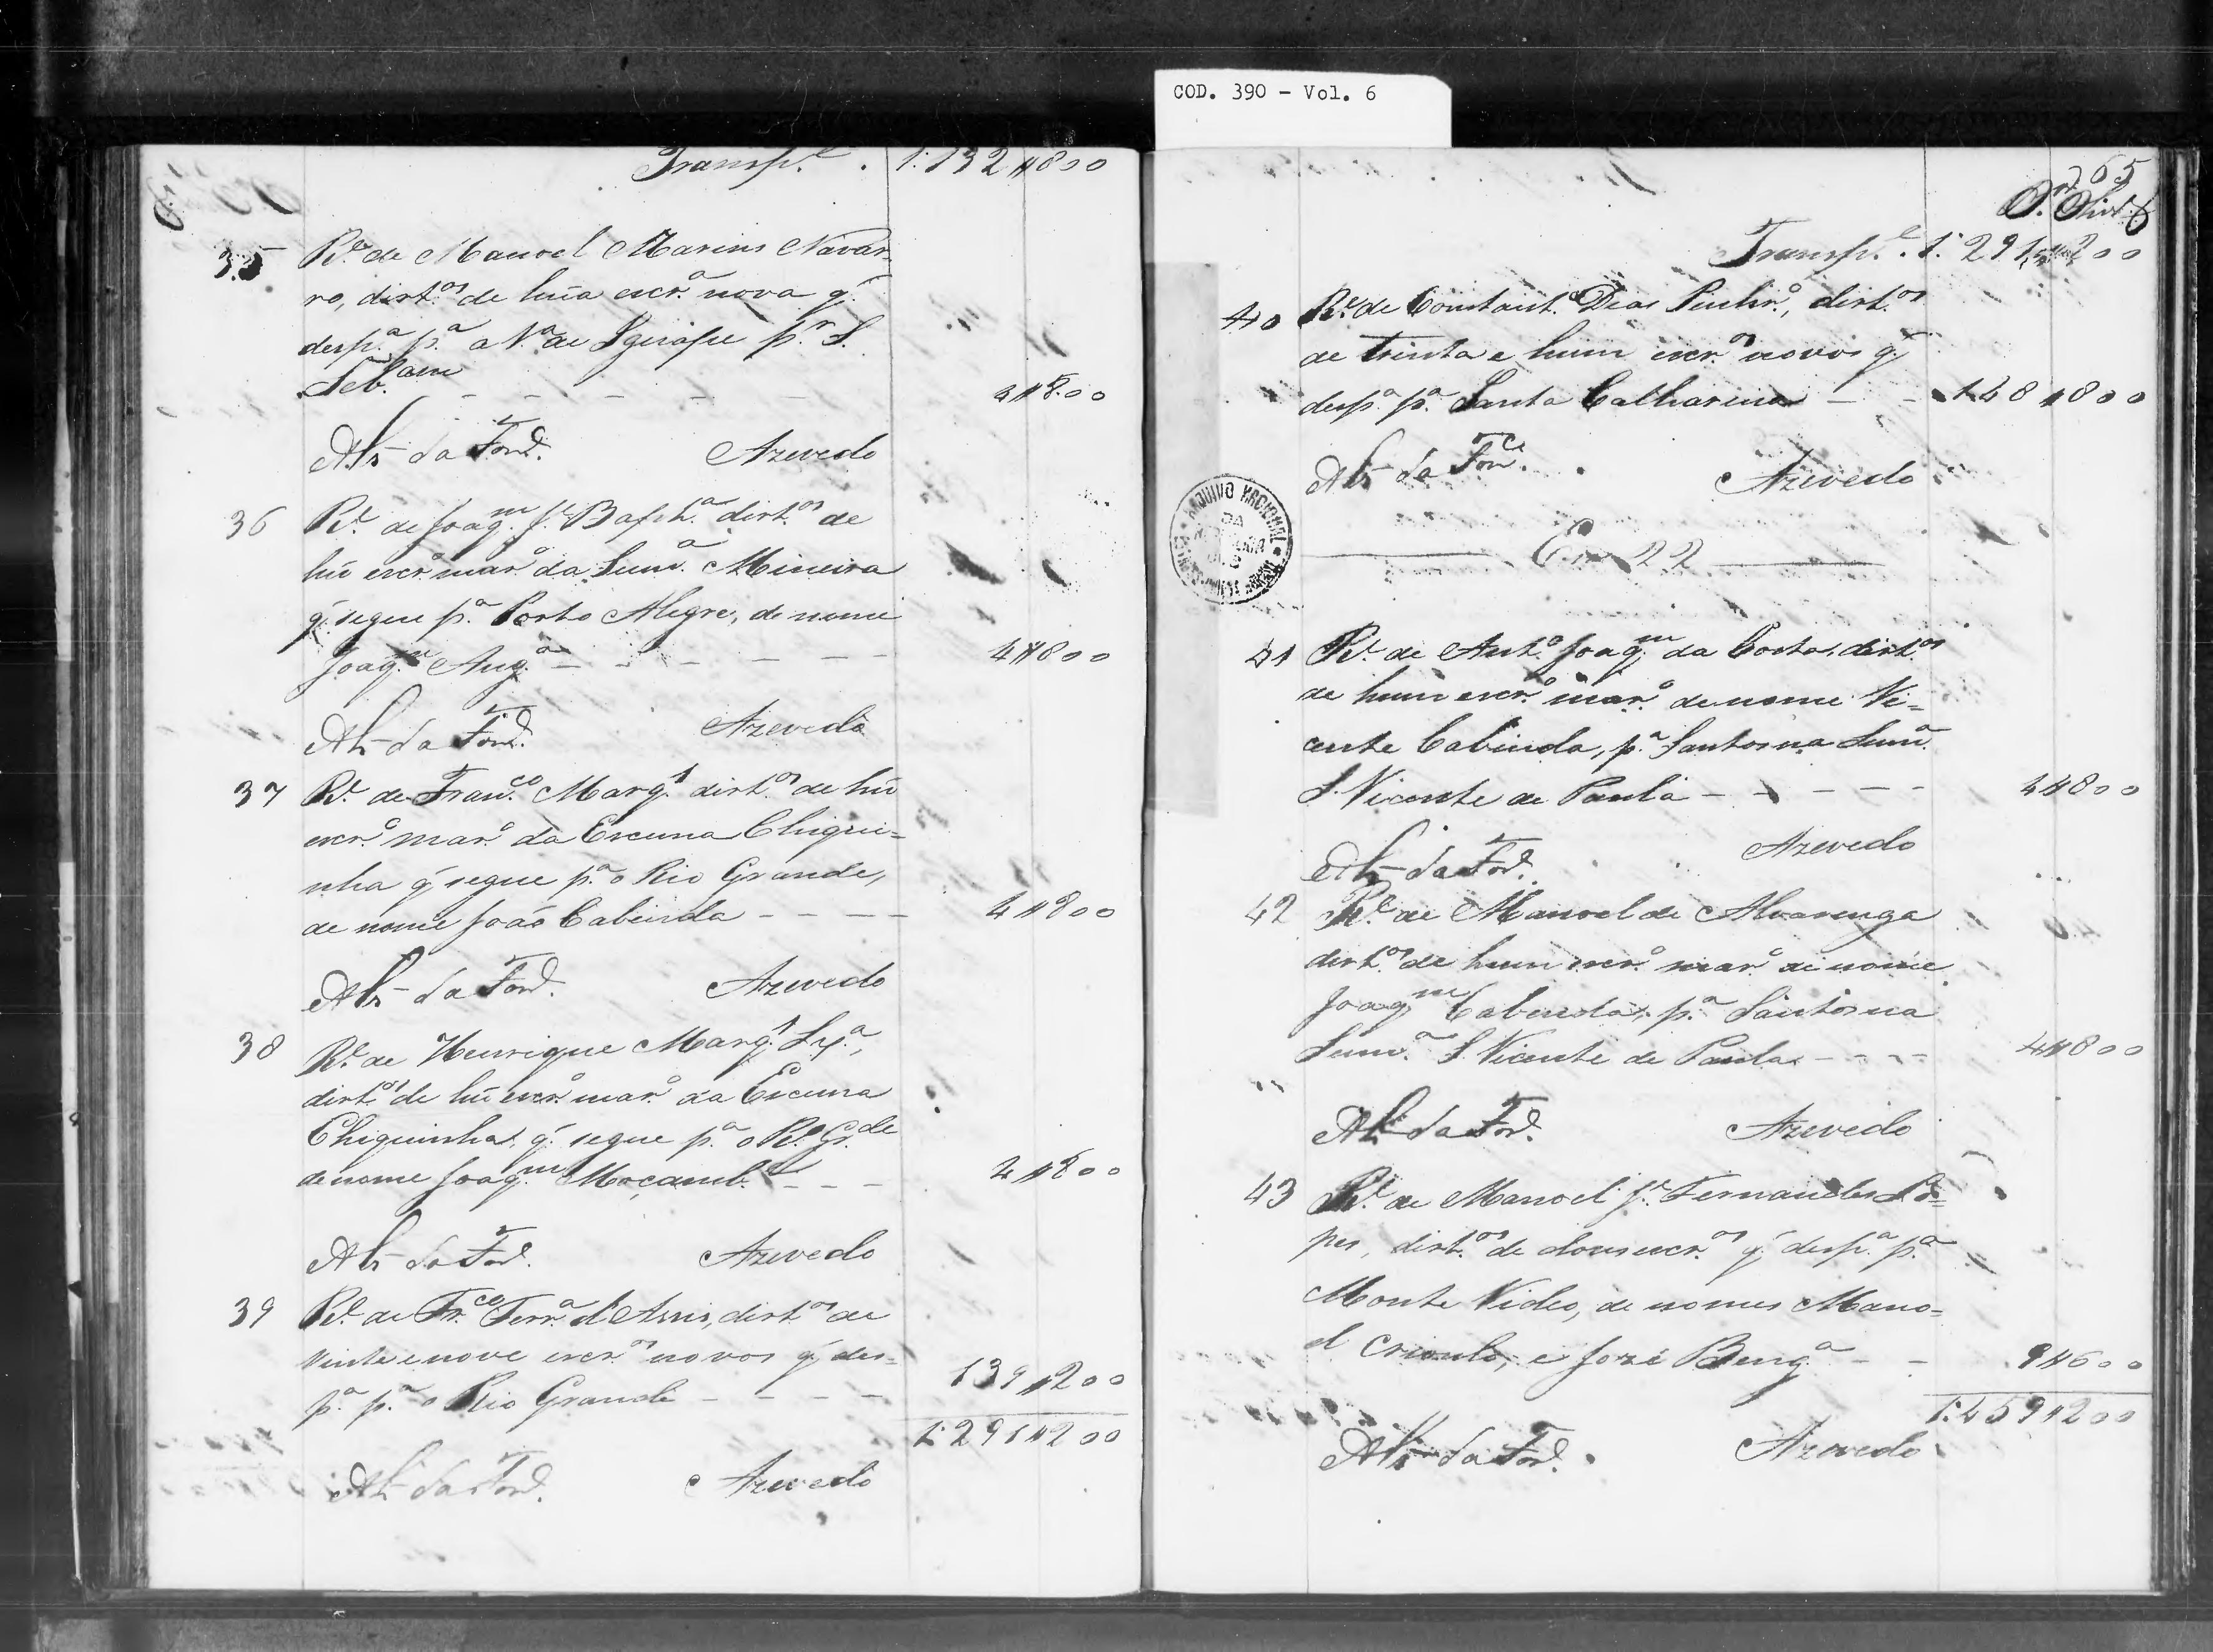 COD. 390 - Vol. 6
Transp.e . 1:132$800
35 R.e de Manoel Marins Navar-
ro, dirt.os de hũa escr.a nova q.
desp.a p.a a V.a de Iguape p.r S.
Seb.am - - - - - 4$800
Alz da Fon.ca Azevedo
36 R.e de Joaq.m J.e Bapt.a dirt.os de
hũ escr.o mar.o da Sum.a Mineira
q. segue p.a Porto Alegre, de nome
Joaq.m Ang.a - - - - - 4$800
Alz da Fon.ca Azevedo
37 R.e de Fran.co Marq.s dirt.os de hũ
escr.o mar.o da Escuna Chiqui-
nha q. segue p.a o Rio Grande,
de nome João Cabinda - - - - 4$800
Alz da Fon.ca Azevedo
38 R.e de Henrique Marq.s Lx.a,
dirt.os de hũ escr.o mar.o da Escuna
Chiquinha q. segue p.a o R.o Gr.de
de nome Joaq.m Moçamb.e - - - 4$800
Alz da Fon.ca Azevedo
39 R.e de Fr.co Ferr.a d'Assis, dirt.os de
vinte e nove escr.os novos q. des-
p.a p.a o Rio Grande - - - - 139$200
1:291$200
Alz da Fon.ca Azevedo
265
Transp.e . 1:291$200
40 R.e de Constant.o Dias Pinhr.o, dirt.os
de trinta e hum escr.os novos q.
desp.a p.a Santa Catharina - - 148$800
Alz da Fon.ca Azevedo
Em 22
41 R.e de Ant.o Joaq.m da Costa, dirt.os
de hum escr.o mar.o de nome Vi-
cente Cabinda, p.a Santos na Sum.a
S. Vicente de Paula - - - - - 4$800
Alz da Fon.ca Azevedo
42 R.e de Manoel de Alvarenga
dirt.os de hum escr.o mar.o de nome
Joaq.m Cabinda, p.a Santos na
Sum.a S. Vicente de Paula - - - - 4$800
Alz da Fon.ca Azevedo
43 R.e de Manoel J.e Fernandes Lo-
pes, dirt.os de dous escr.os q. desp.a p.a
Monte Video, de nomes Mano-
el Crioulo, e José Beng.a - - 9$600
1:459$200
Alz da Fon.ca Azevedo